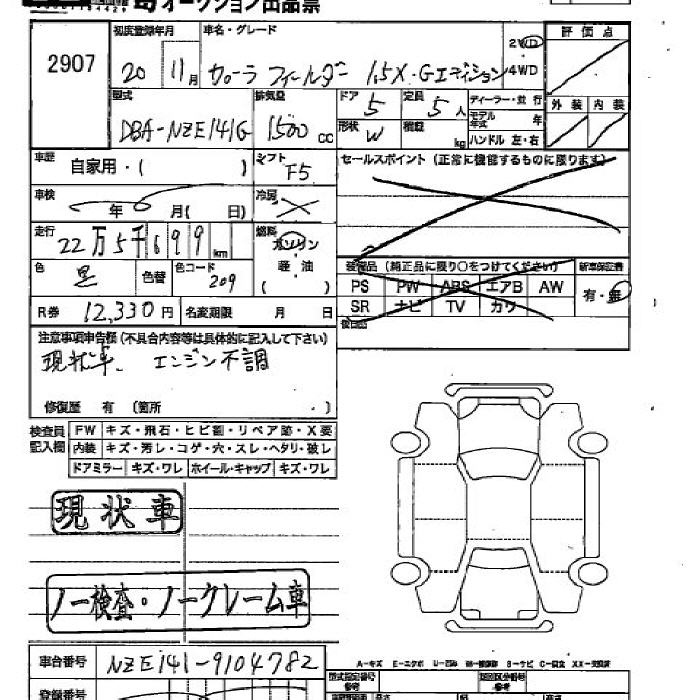 オークション出品票
2907
初度登録年月 車名・グレード
20 11月 カローラ フィールダー 1.5X・Gエディション
2WD
4WD
評価点
外装 内装
型式 排気量 ドア 定員 ディーラー・並行
DBA-NZE141G 1500cc 5 5人
モデル年式 年
形状 W 積載 kg ハンドル 左・右
車歴 自家用・( ) シフト F5
セールスポイント (正常に機能するものに限ります)
車検 年 月( 日) 冷房
走行 22万5千699km 燃料 ガソリン
軽油
( )
色 黒 色替 色コード 209
装備品 (純正品に限り○をつけてください) 新車保証書
PS PW ABS エアB AW 有・無
SR ナビ TV カワ
後日品
R券 12,330円 名変期限 月 日
注意事項申告欄 (不具合内容等は具体的に記入して下さい)
現状車、エンジン不調
修復歴 有 (箇所 )
検査員記入欄
FW キズ・飛石・ヒビ割・リペア跡・X要
内装 キズ・汚レ・コゲ・穴・スレ・ヘタリ・破レ
ドアミラー キズ・ワレ ホイール・キャップ キズ・ワレ
現状車
ノー検査・ノークレーム車
車台番号 NZE141-9104782
登録番号
A-キズ E-エクボ U-凹み W-補修跡 S-サビ C-腐食 XX-交換済
型式指定番号 類別区分番号